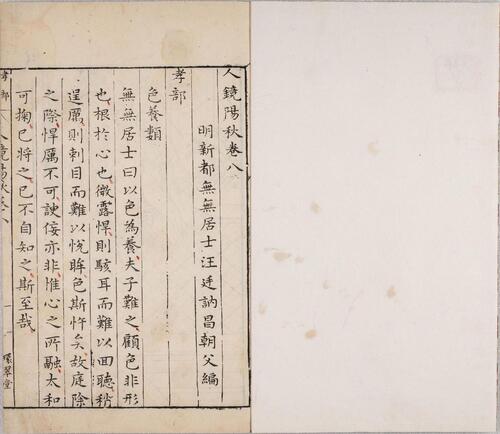 人鏡陽秋卷八
明新都無無居士汪廷訥昌朝父編
孝部
色養類
無無居士曰以色為養夫子難之顧色非形
也根於心也微露悍則駭耳而難以回聽稍
逞厲則刺目而難以悅眸色斯忤矣故庭除
之際悍厲不可諛佞亦非惟心之所融太和
可掬已將之已不自知之斯至哉
孝部
人鏡陽秋卷八
一
環翠堂